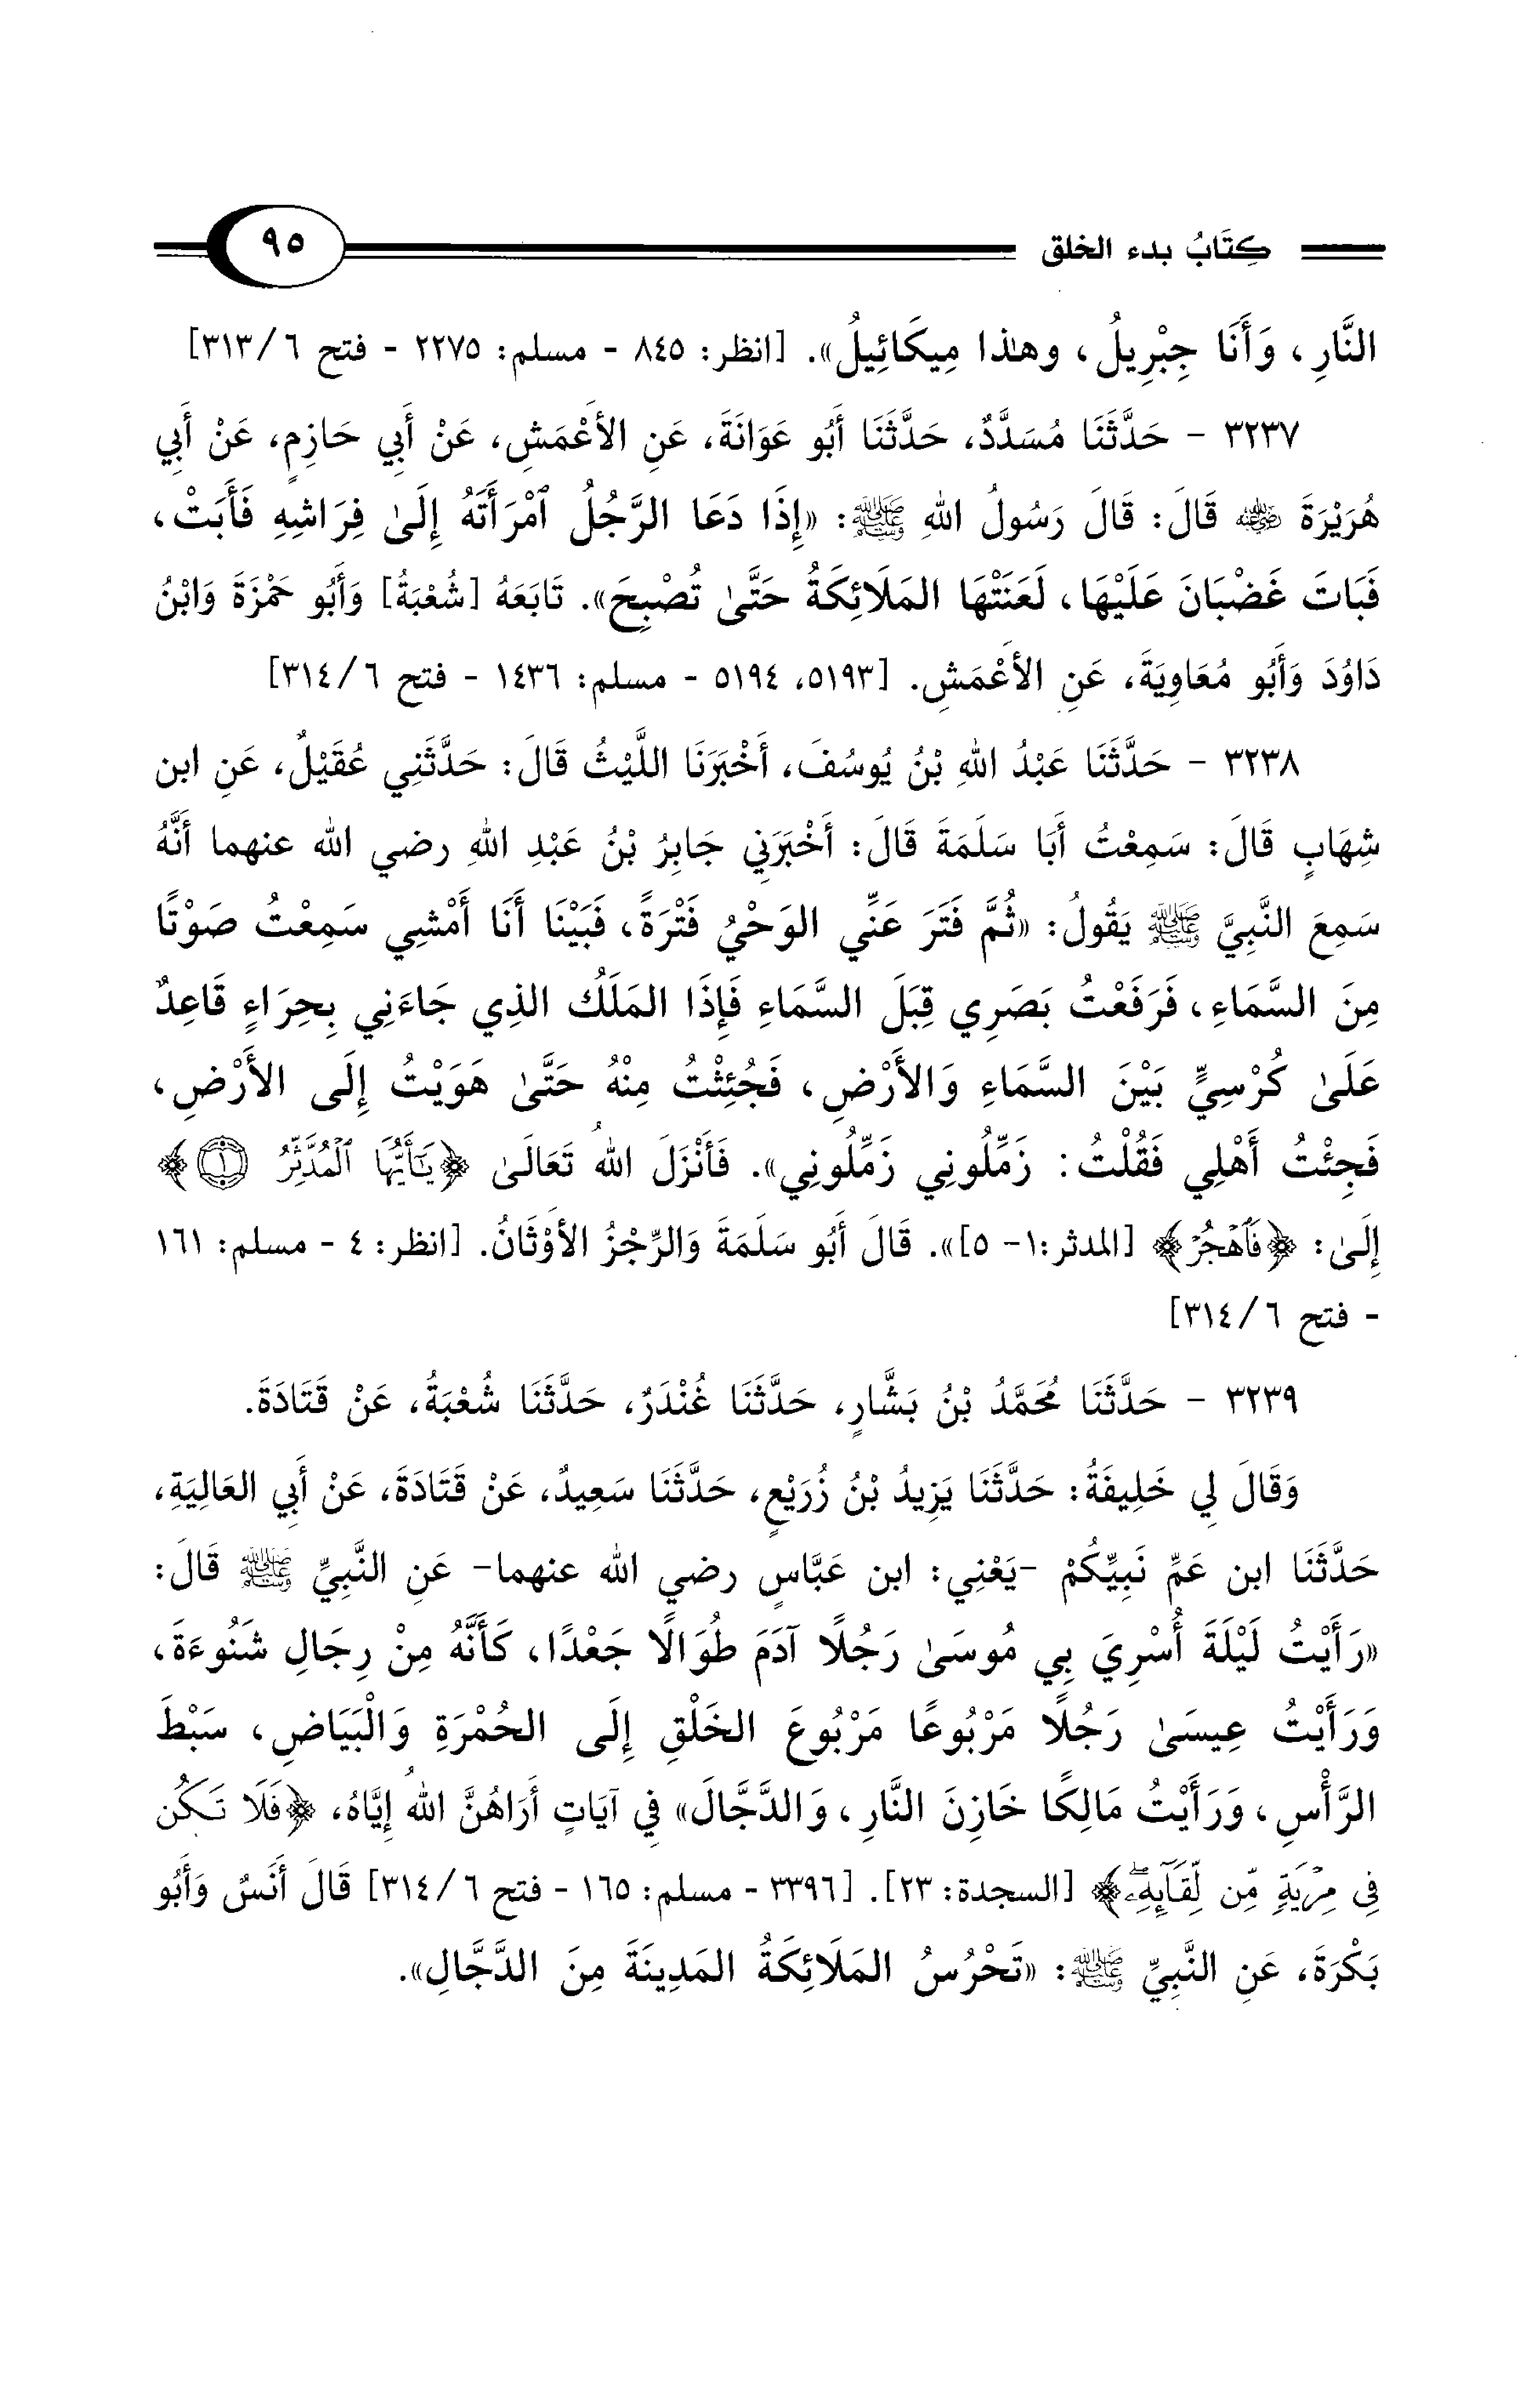 كِتَابُ بدء الخلق ٩٥
النَّارِ، وَأَنَا جِبْرِيلُ، وهذا مِيكَائِيلُ». [انظر: ٨٤٥ - مسلم: ٢٢٧٥ - فتح ٦/ ٣١٣]
٣٢٣٧ - حَدَّثَنَا مُسَدَّدٌ، حَدَّثَنَا أَبُو عَوَانَةَ، عَنِ الأَعْمَشِ، عَنْ أَبِي حَازِمٍ، عَنْ أَبِي
هُرَيْرَةَ رضي الله عنه قَالَ: قَالَ رَسُولُ اللهِ ﷺ: «إِذَا دَعَا الرَّجُلُ ٱمْرَأَتَهُ إِلَىٰ فِرَاشِهِ فَأَبَتْ،
فَبَاتَ غَضْبَانَ عَلَيْهَا، لَعَنَتْهَا المَلَائِكَةُ حَتَّىٰ تُصْبِحَ». تَابَعَهُ [شُعْبَةُ] وَأَبُو حَمْزَةَ وَابْنُ
دَاوُدَ وَأَبُو مُعَاوِيَةَ، عَنِ الأَعْمَشِ. [٥١٩٣، ٥١٩٤ - مسلم: ١٤٣٦ - فتح ٦/ ٣١٤]
٣٢٣٨ - حَدَّثَنَا عَبْدُ اللهِ بْنُ يُوسُفَ، أَخْبَرَنَا اللَّيْثُ قَالَ: حَدَّثَنِي عُقَيْلٌ، عَنِ ابن
شِهَابٍ قَالَ: سَمِعْتُ أَبَا سَلَمَةَ قَالَ: أَخْبَرَنِي جَابِرُ بْنُ عَبْدِ اللهِ رضي الله عنهما أَنَّهُ
سَمِعَ النَّبِيَّ ﷺ يَقُولُ: «ثُمَّ فَتَرَ عَنِّي الوَحْيُ فَتْرَةً، فَبَيْنَا أَنَا أَمْشِي سَمِعْتُ صَوْتًا
مِنَ السَّمَاءِ، فَرَفَعْتُ بَصَرِي قِبَلَ السَّمَاءِ فَإِذَا المَلَكُ الذِي جَاءَنِي بِحِرَاءٍ قَاعِدٌ
عَلَىٰ كُرْسِيٍّ بَيْنَ السَّمَاءِ وَالأَرْضِ، فَجُئِثْتُ مِنْهُ حَتَّىٰ هَوَيْتُ إِلَى الأَرْضِ،
فَجِئْتُ أَهْلِي فَقُلْتُ: زَمِّلُونِي زَمِّلُونِي». فَأَنْزَلَ اللهُ تَعَالَىٰ ﴿يَٰٓأَيُّهَا ٱلْمُدَّثِّرُ ۝١﴾
إِلَىٰ: ﴿فَٱهْجُرْ﴾ [المدثر:١- ٥]». قَالَ أَبُو سَلَمَةَ وَالرِّجْزُ الأَوْثَانُ. [انظر: ٤ - مسلم: ١٦١
- فتح ٦/ ٣١٤]
٣٢٣٩ - حَدَّثَنَا مُحَمَّدُ بْنُ بَشَّارٍ، حَدَّثَنَا غُنْدَرٌ، حَدَّثَنَا شُعْبَةُ، عَنْ قَتَادَةَ.
وَقَالَ لِي خَلِيفَةُ: حَدَّثَنَا يَزِيدُ بْنُ زُرَيْعٍ، حَدَّثَنَا سَعِيدٌ، عَنْ قَتَادَةَ، عَنْ أَبِي العَالِيَةِ،
حَدَّثَنَا ابن عَمِّ نَبِيِّكُمْ -يَعْنِي: ابن عَبَّاسٍ رضي الله عنهما- عَنِ النَّبِيِّ ﷺ قَالَ:
«رَأَيْتُ لَيْلَةَ أُسْرِيَ بِي مُوسَىٰ رَجُلًا آدَمَ طُوَالًا جَعْدًا، كَأَنَّهُ مِنْ رِجَالِ شَنُوءَةَ،
وَرَأَيْتُ عِيسَىٰ رَجُلًا مَرْبُوعًا مَرْبُوعَ الخَلْقِ إِلَى الحُمْرَةِ وَالْبَيَاضِ، سَبْطَ
الرَّأْسِ، وَرَأَيْتُ مَالِكًا خَازِنَ النَّارِ، وَالدَّجَّالَ» فِي آيَاتٍ أَرَاهُنَّ اللهُ إِيَّاهُ، ﴿فَلَا تَكُن
فِى مِرْيَةٍ مِّن لِّقَآئِهِۦۖ﴾ [السجدة: ٢٣]. [٣٣٩٦ - مسلم: ١٦٥ - فتح ٦/ ٣١٤] قَالَ أَنَسٌ وَأَبُو
بَكْرَةَ، عَنِ النَّبِيِّ ﷺ: «تَحْرُسُ المَلَائِكَةُ المَدِينَةَ مِنَ الدَّجَّالِ».